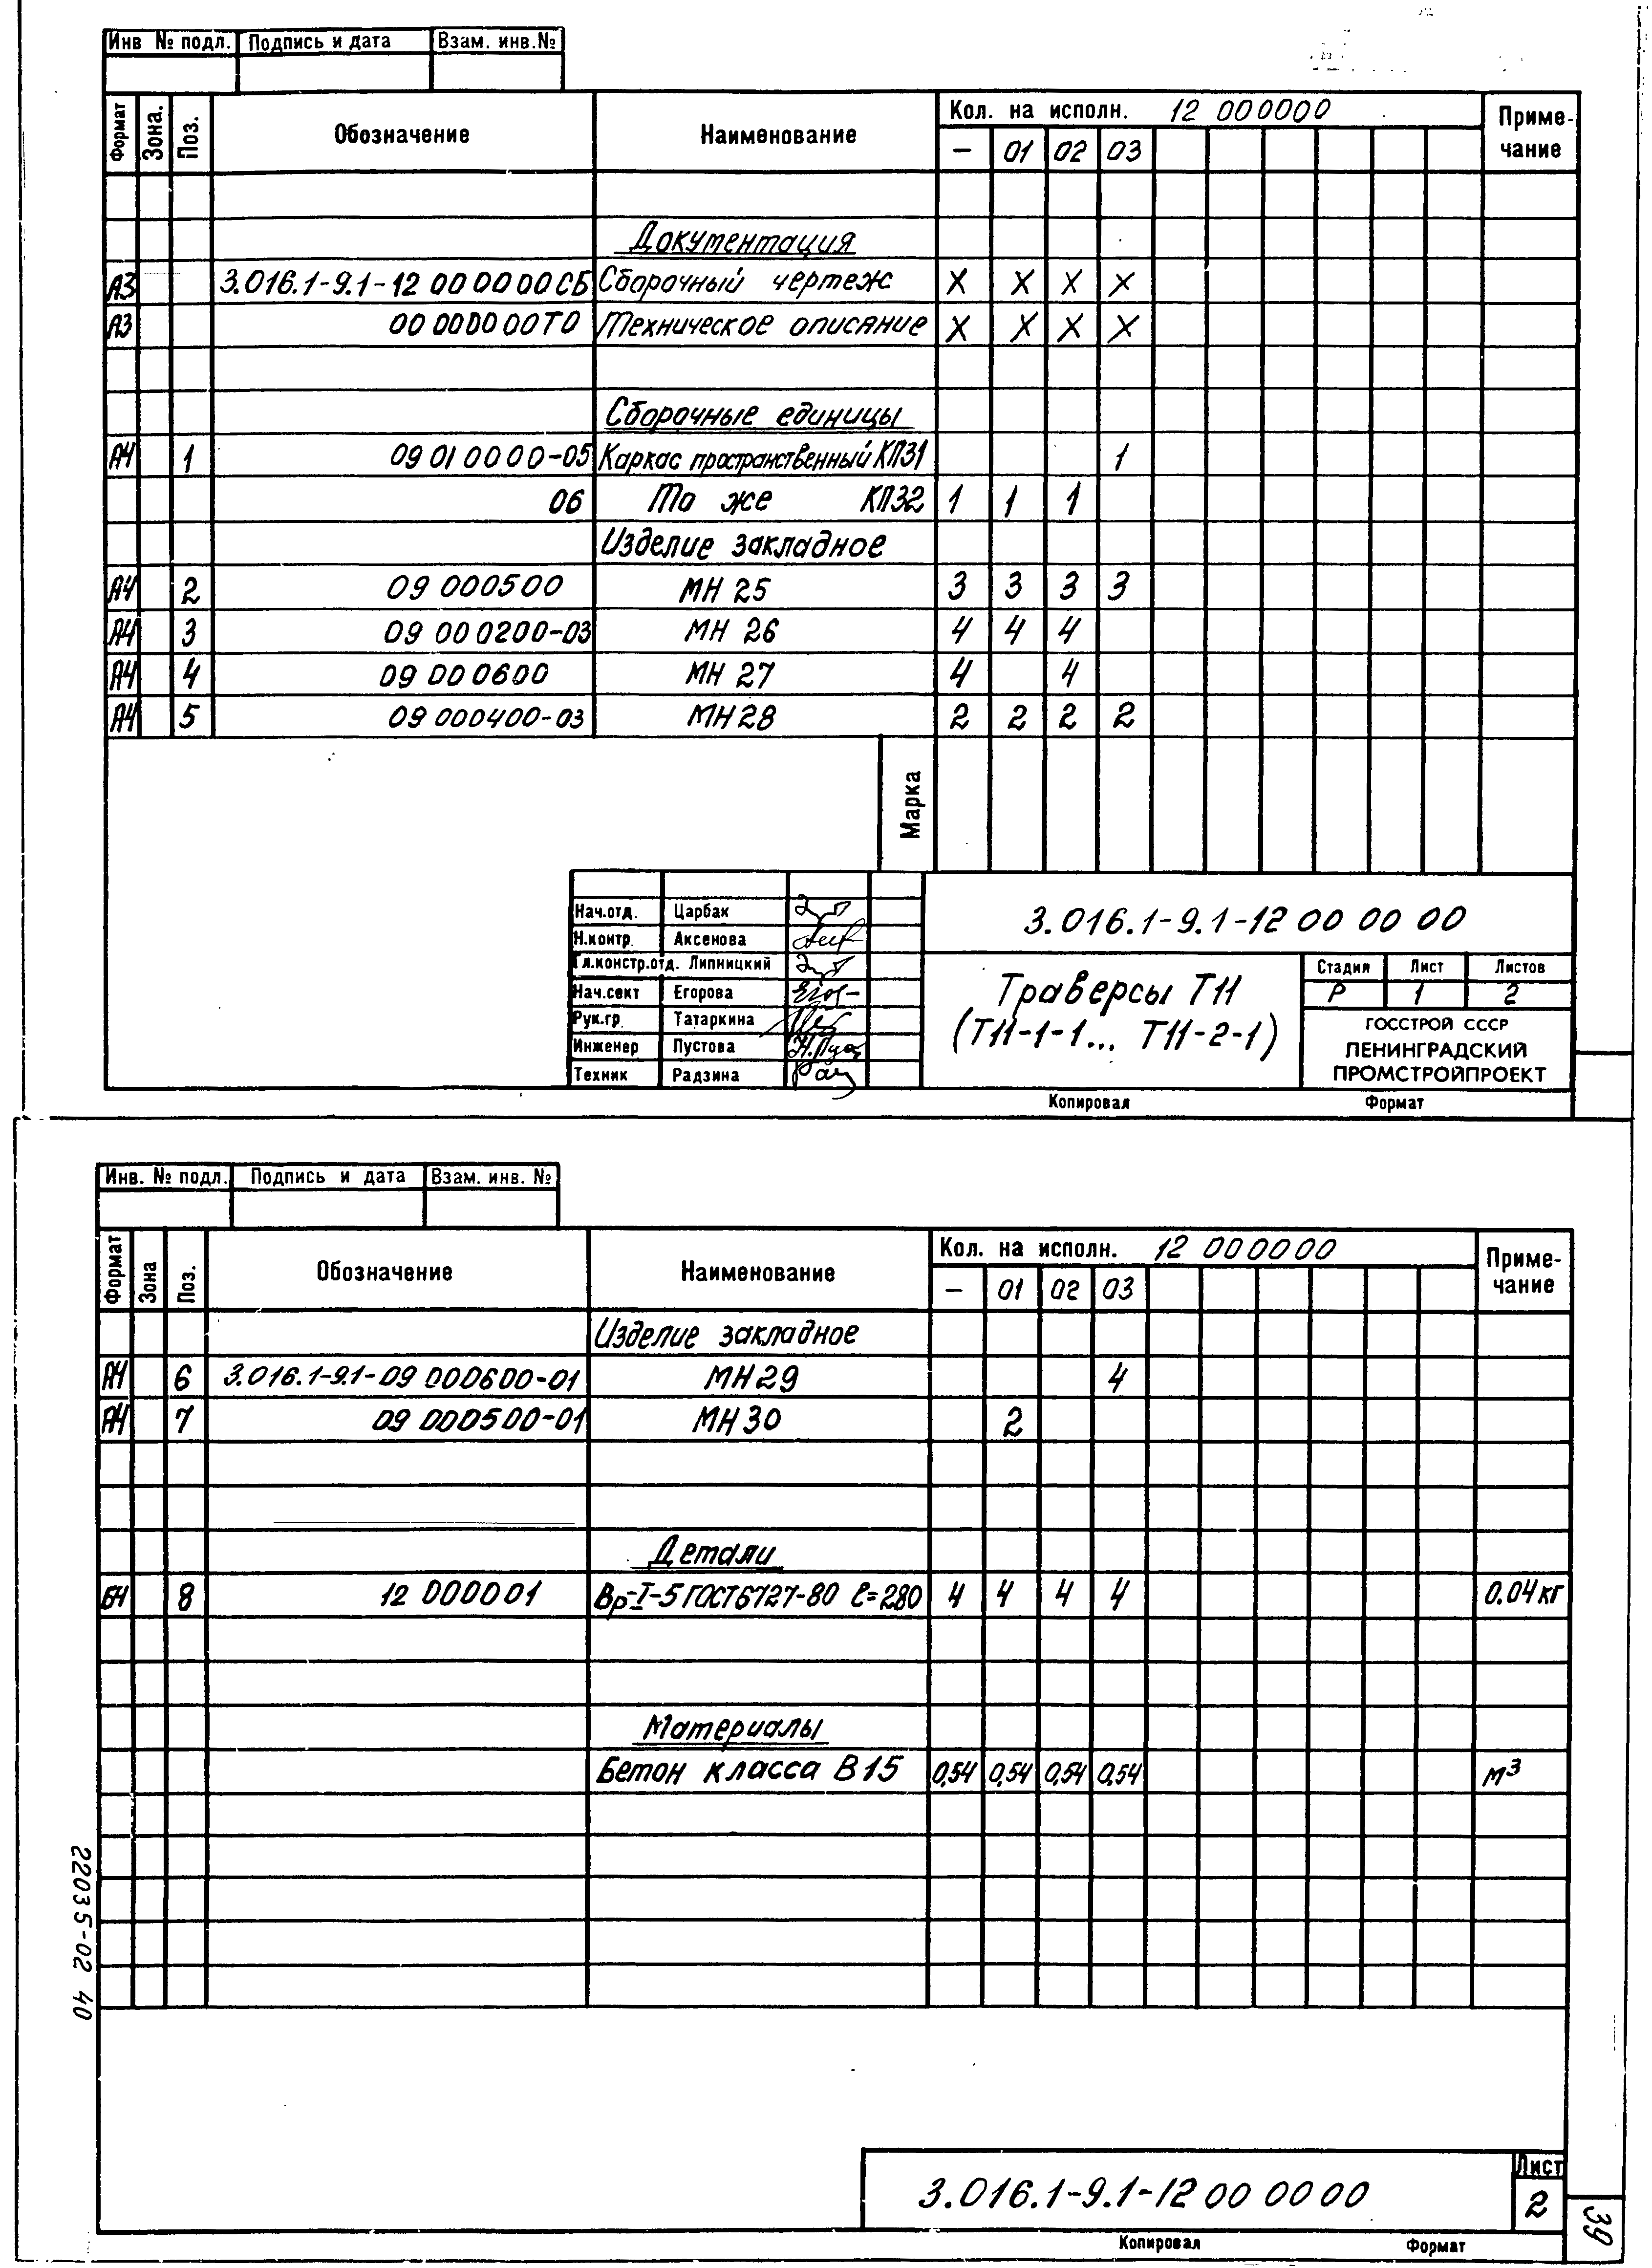 Инв № подл. Подпись и дата Взам. инв.№
Формат Зона. Поз. Обозначение Наименование Кол. на исполн. 12 000000 Приме-
чание
– 01 02 03
Документация
А3 3.016.1-9.1-12 00 00 00 СБ Сборочный чертеж X X X X
А3 00 00 00 00 ТО Техническое описание X X X X
Сборочные единицы
А4 1 09 01 00 00-05 Каркас пространственный КП31 1
06 То же КП32 1 1 1
Изделие закладное
А4 2 09 000500 МН 25 3 3 3 3
А4 3 09 000200-03 МН 26 4 4 4
А4 4 09 000600 МН 27 4 4
А4 5 09 000400-03 МН28 2 2 2 2
Марка
Нач.отд. Царбак
Н.контр. Аксенова
Гл.констр.отд. Липницкий
Нач.сект Егорова
Рук.гр. Татаркина
Инженер Пустова
Техник Радзина
3.016.1-9.1-12 00 00 00
Траверсы Т11
(Т11-1-1... Т11-2-1)
Стадия Лист Листов
Р 1 2
ГОССТРОЙ СССР
ЛЕНИНГРАДСКИЙ
ПРОМСТРОЙПРОЕКТ
Копировал Формат
Инв. № подл. Подпись и дата Взам. инв. №
Формат Зона Поз. Обозначение Наименование Кол. на исполн. 12 000000 Приме-
чание
– 01 02 03
Изделие закладное
А4 6 3.016.1-9.1-09 000600-01 МН29 4
А4 7 09 000500-01 МН30 2
Детали
Б4 8 12 000001 Вр-I-5 ГОСТ6727-80 ℓ=280 4 4 4 4 0.04 кг
Материалы
Бетон класса В15 0,54 0,54 0,54 0,54 м³
22035-02 40
3.016.1-9.1-12 00 00 00
Лист
2
39
Копировал Формат